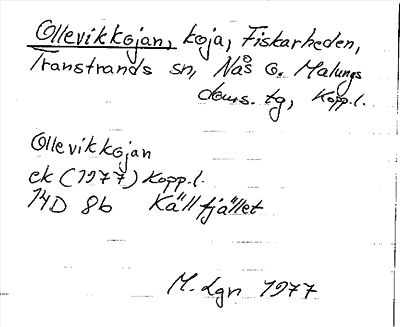 Ollevikkojan, koja, Fiskarheden,
Transtrands sn, Nås o. Malungs
doms. tg, Kopp.l.
Ollevikkojan
ek (1977) Kopp.l.
14D 8b Källfjället
M. Lgn 1977